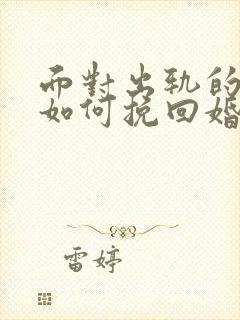 而對出軌的
如何挽回婚
雷婷